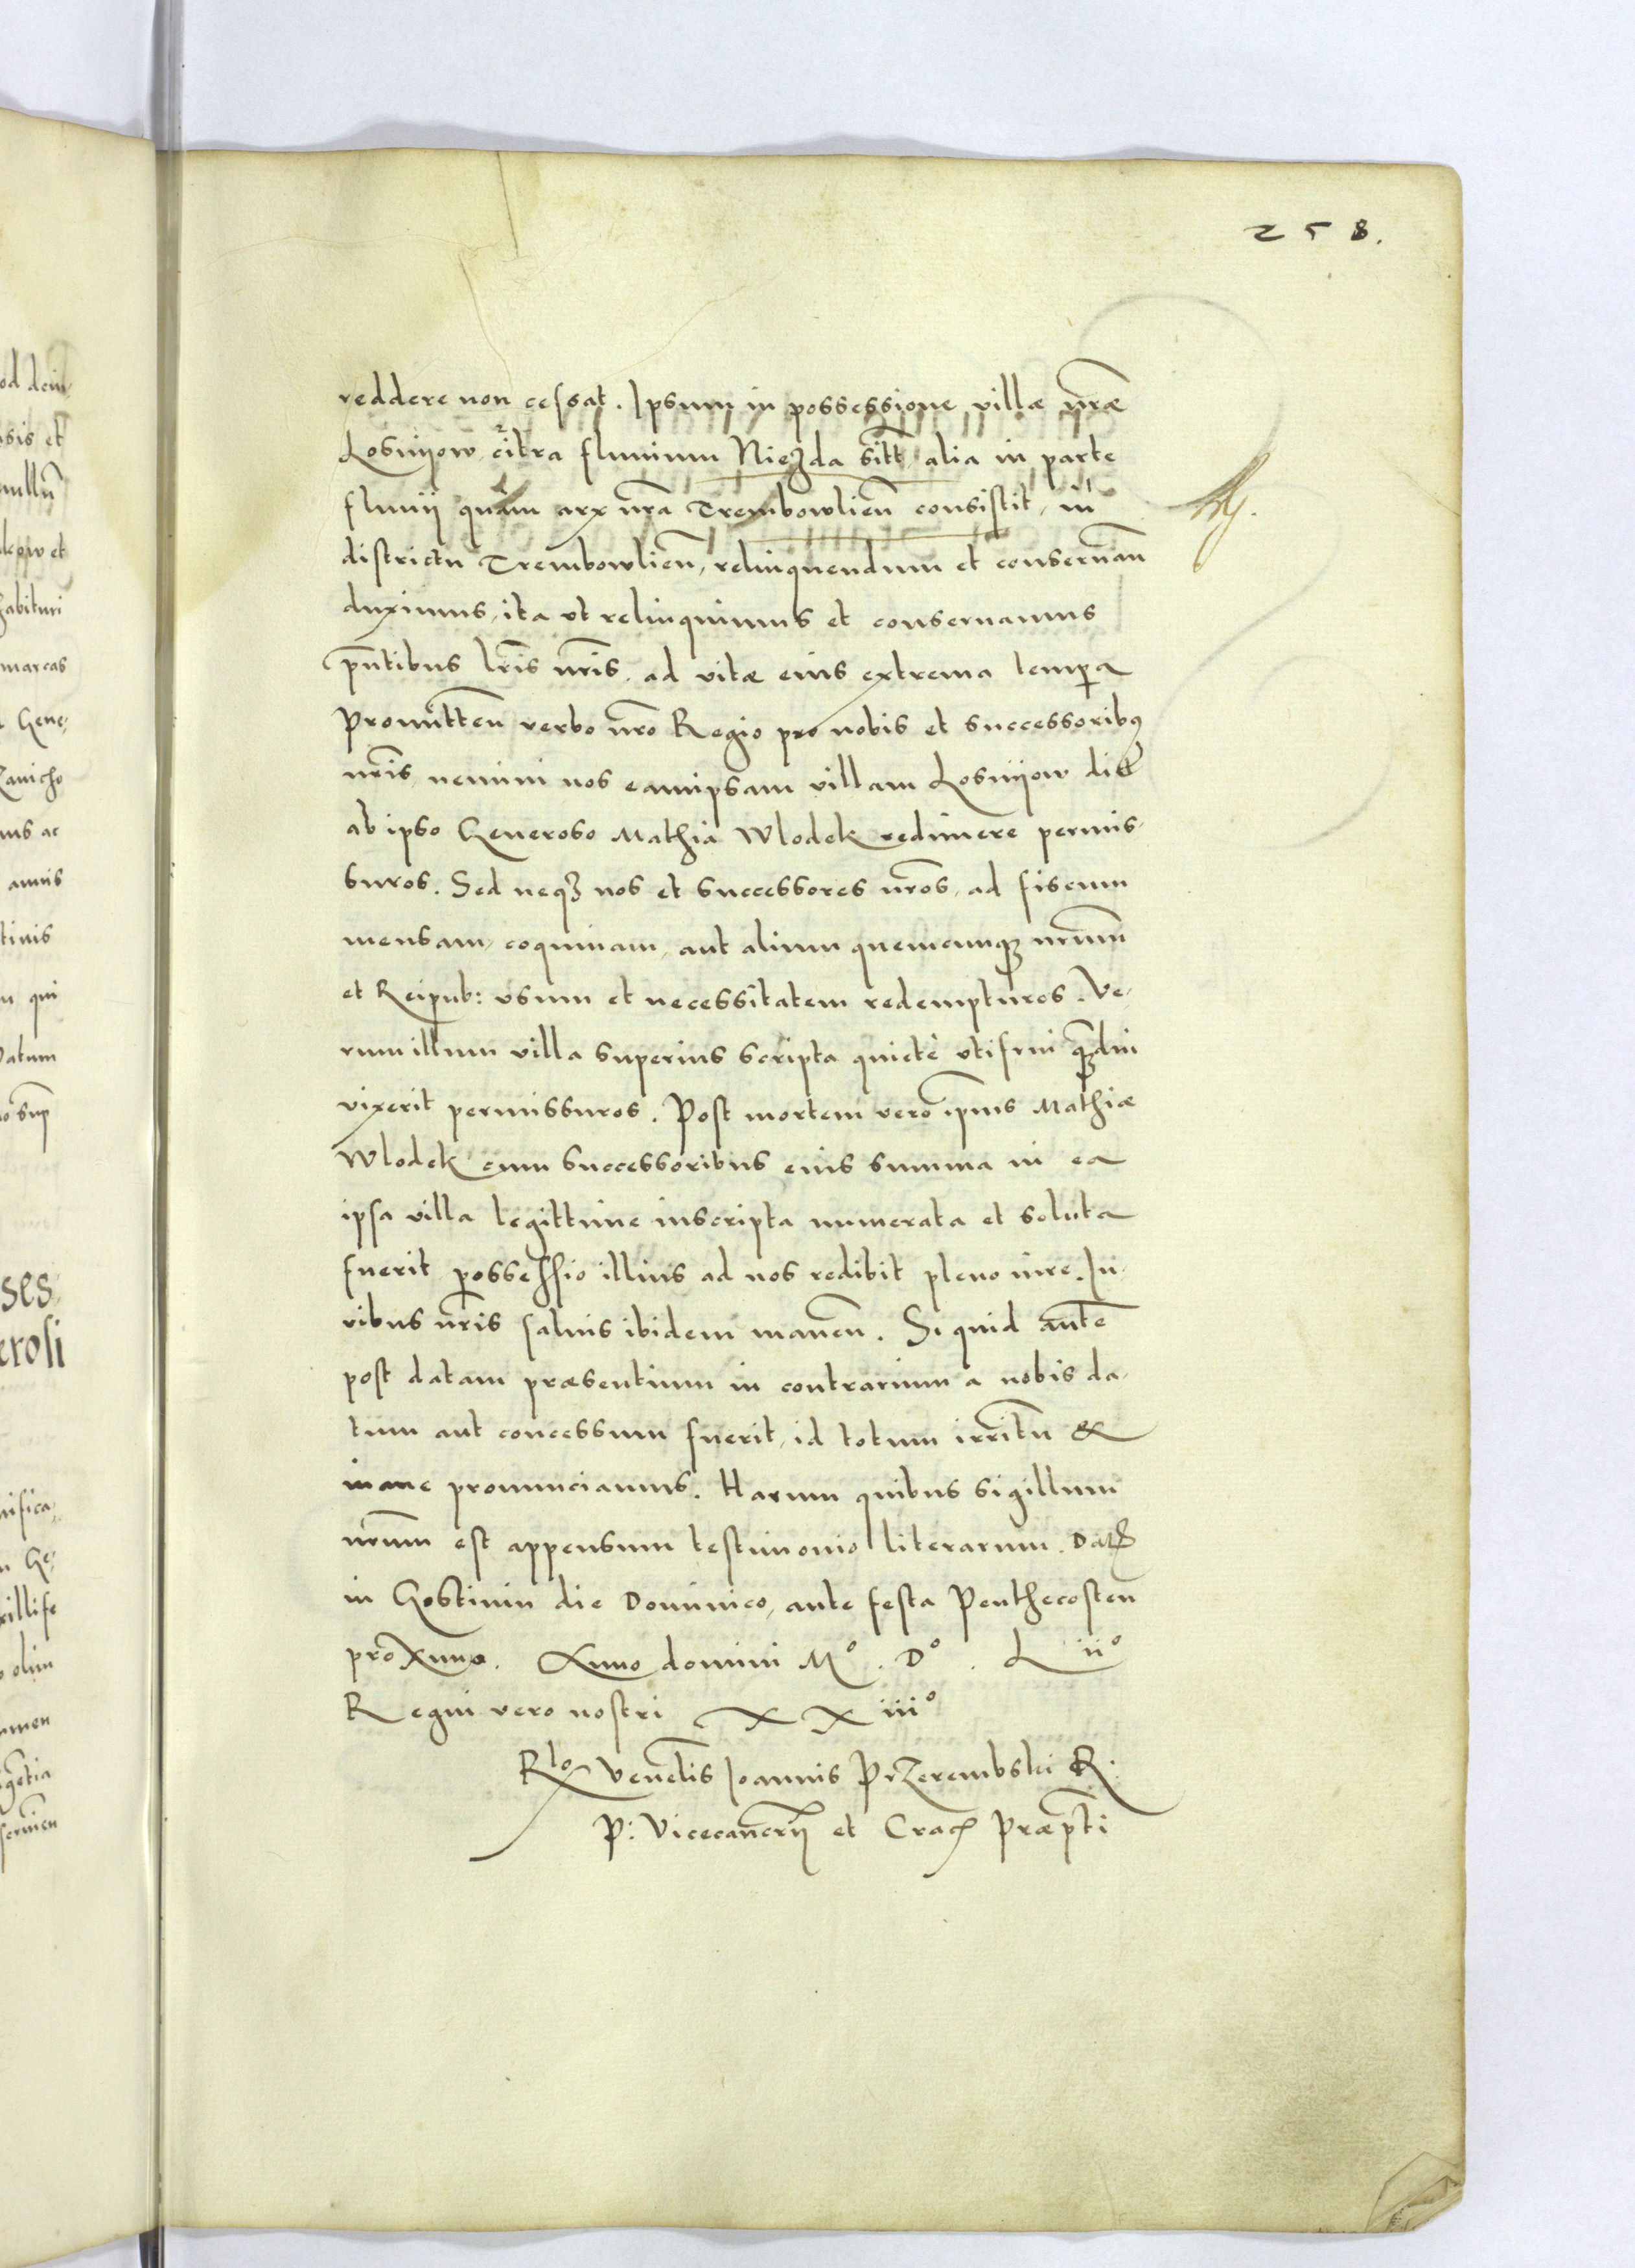 258.
reddere non cessat. Ipsum in possessione villæ nr̃æ
Losnijow, citra fluuium Niezda sitt̃ alia in parte
fluuij quàm arx nr̃a Trembowlien̄ consistit, in
districtu Trembowlien̄, relinquendum et conseruan̄
duximus, ita vt relinquimus et conseruamus
pñtibus lr̃is nr̃is, ad vitæ eius extrema tempora
Promitten̄ verbo nr̃o Regio pro nobis et successoribus
nr̃is nemini nos eamipsam villam Losnijow
ab ipso Generoso Mathia Wlodek redimere permis-
suros. Sed neqz nos et successores nr̃os, ad fiscum
mensam, coquinam, aut alium quemcunqz nr̃um
et Reipub: vsum et necessitatem redempturos. Ve-
rum illum villa superius scripta quietè vtifrui qz̃diu
vixerit permissuros. Post mortem vero ip̃ius Mathiæ
Wlodek cum successoribus eius summa in ea
ipsa villa legittime inscripta numerata et soluta
fuerit possessio illius ad nos redibit pleno iure. Iu-
ribus nr̃is saluis ibidem manen̄. Si quid aute͂
post datam præsentium in contrarium a nobis da-
tum aut concessum fuerit, id totum irritu͂ &
inane pronunciamus. Harum quibus sigillum
nr̃um est appensum testimonio literarum. Dat̃
in Gostinin die Dominico, ante festa Penthecosten
proximo. Anno domini Mº. Dº. Liiº
Regni vero nostri XXiiiº
Rlo Venelis Ioannis Przerembski R:
P: Vicecancrij et Crac̃ Præpti
od dein-
sis et
nullu͂
kow et
habituri
marcas
Gene-
Zanicho
ms ac
annis
tinis
qui
Datum
o sup̃
ses-
erosi
nifica-
Ge-
xillife
olim
men
getia
seruien